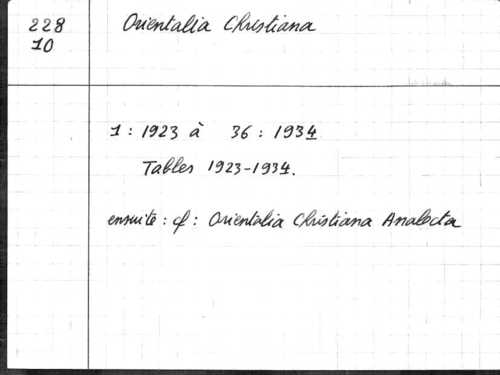 228
10
Orientalia Christiana
1 : 1923 à 36 : 1934
Tables 1923-1934.
ensuite : cf : Orientalia Christiana Analecta